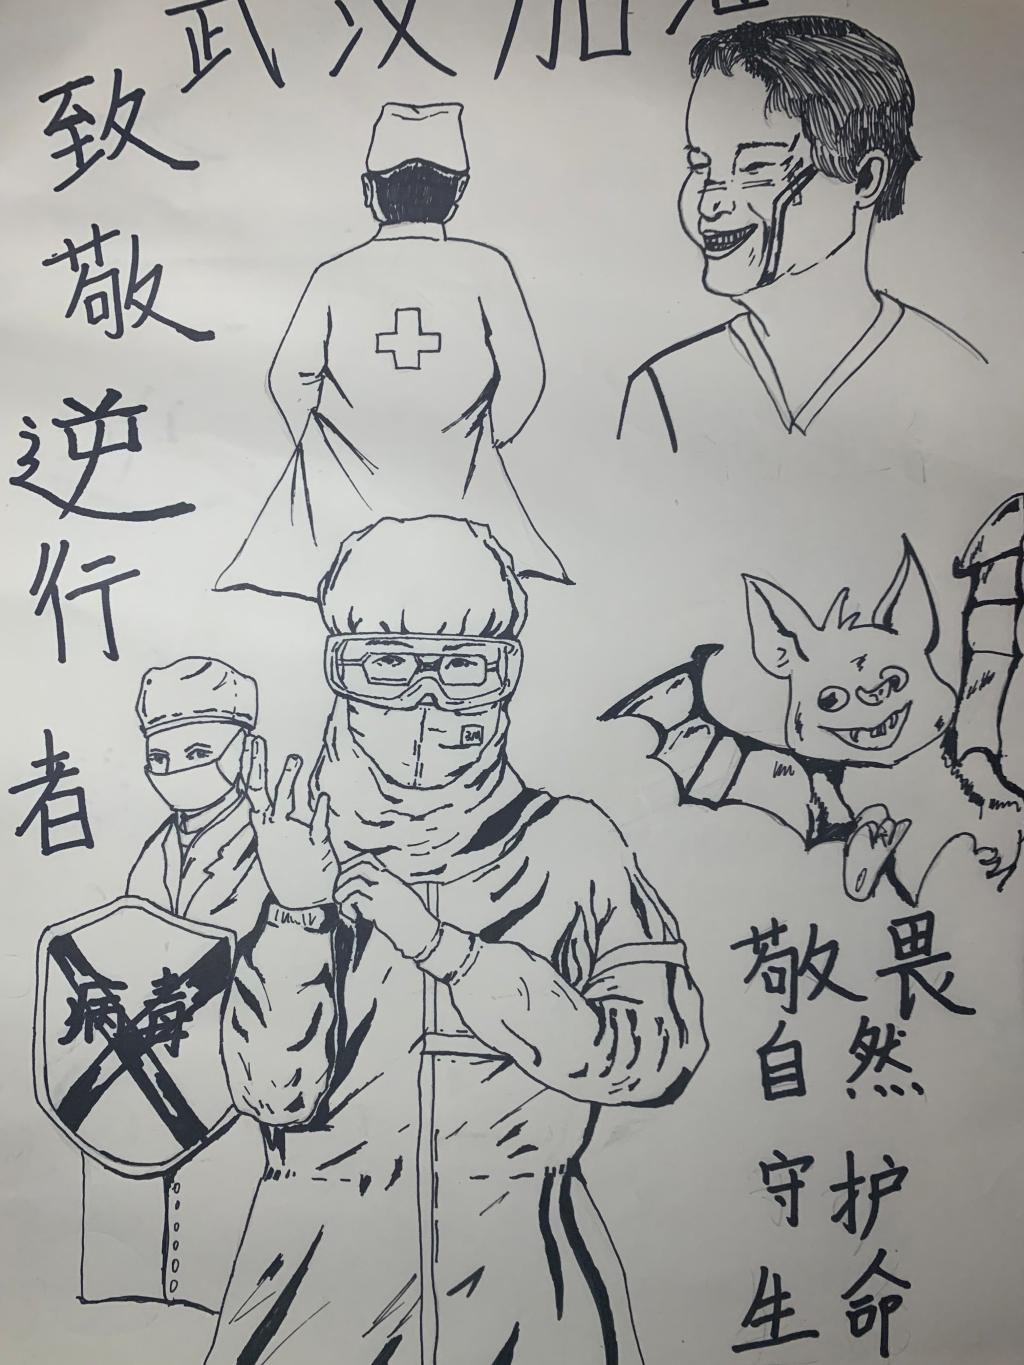 武汉加油
致敬逆行者
3M
病毒
敬畏
自然
守护
生命